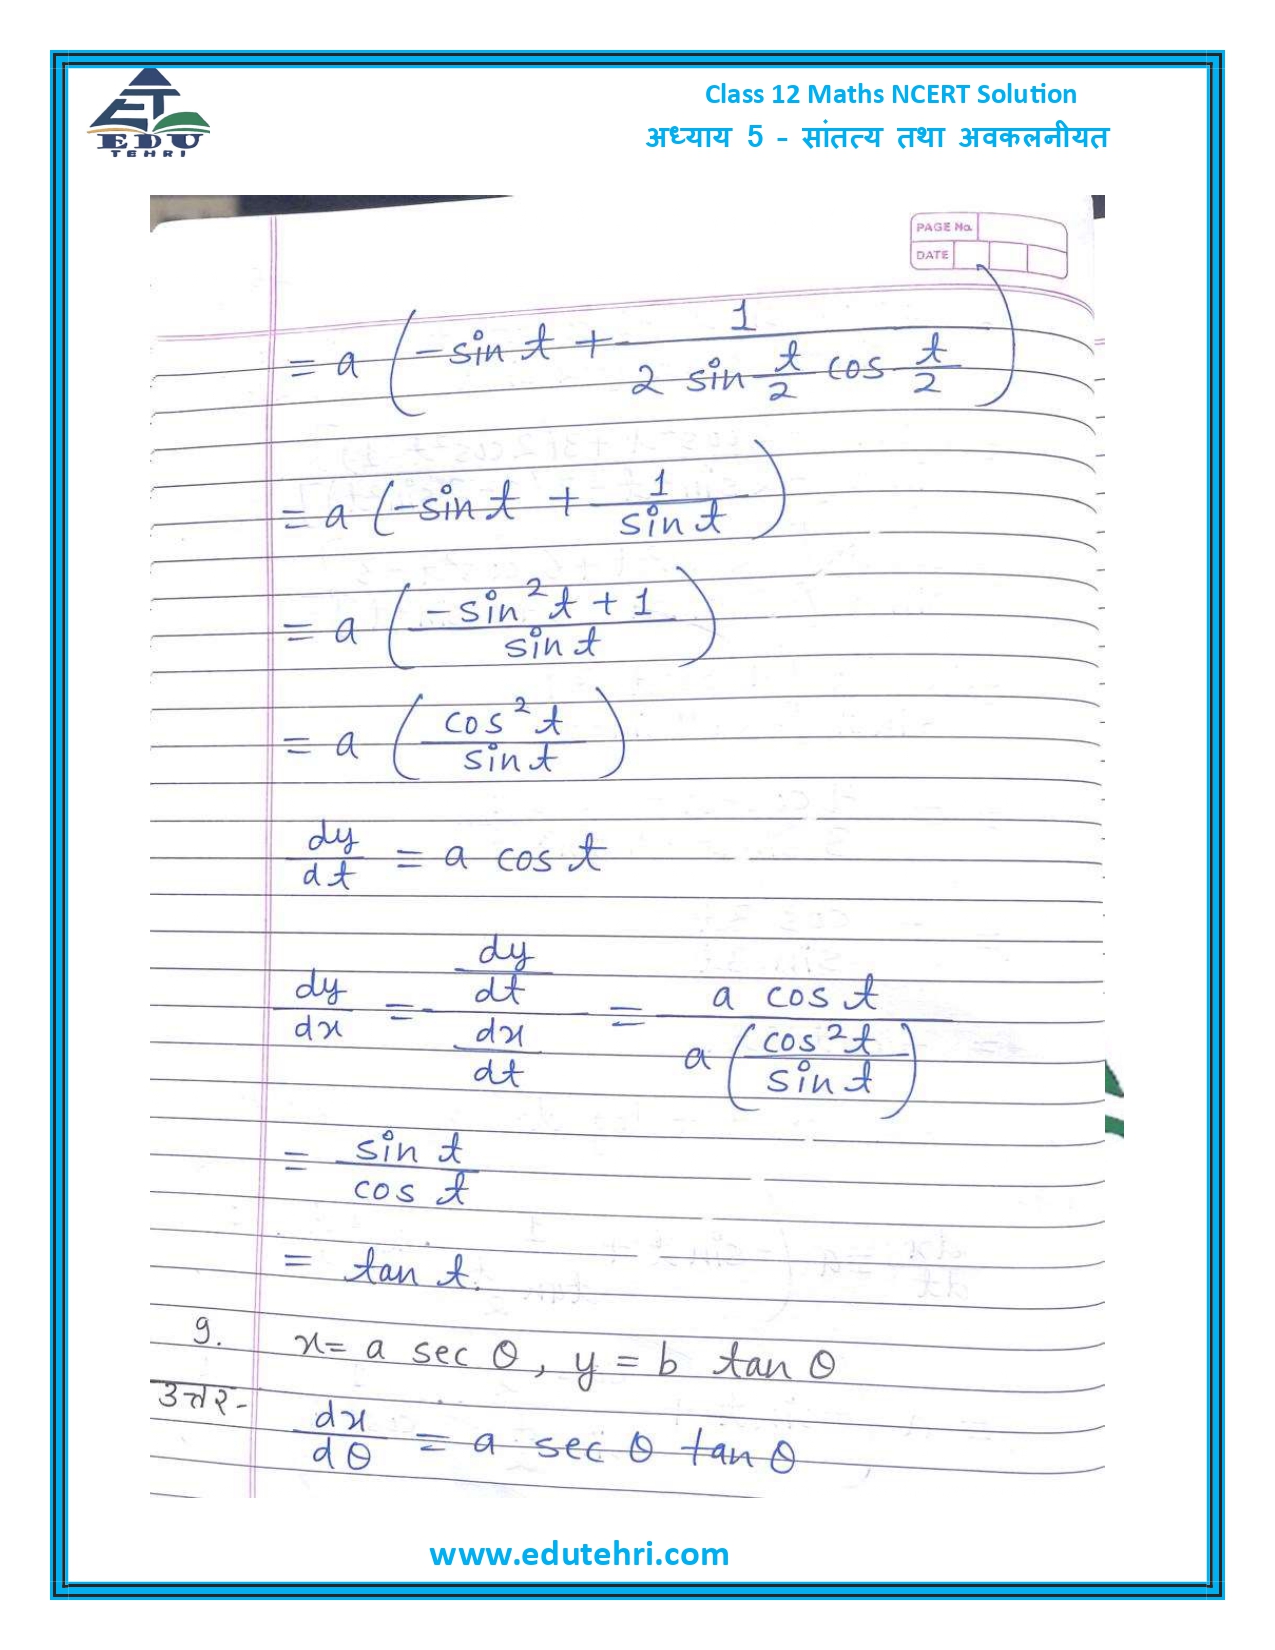 EDU
TEHRI
Class 12 Maths NCERT Solution
अध्याय 5 - सांतत्य तथा अवकलनीयत
PAGE No.
DATE
= a (-sin t + 1/(2 sin t/2 cos t/2))
= a (-sin t + 1/sin t)
= a ((-sin² t + 1)/sin t)
= a (cos² t/sin t)
dy/dt = a cos t
dy/dx = (dy/dt)/(dx/dt) = a cos t/(a (cos² t/sin t))
= sin t/cos t
= tan t.
9. x = a sec θ, y = b tan θ
उत्तर- dx/dθ = a sec θ tan θ
www.edutehri.com